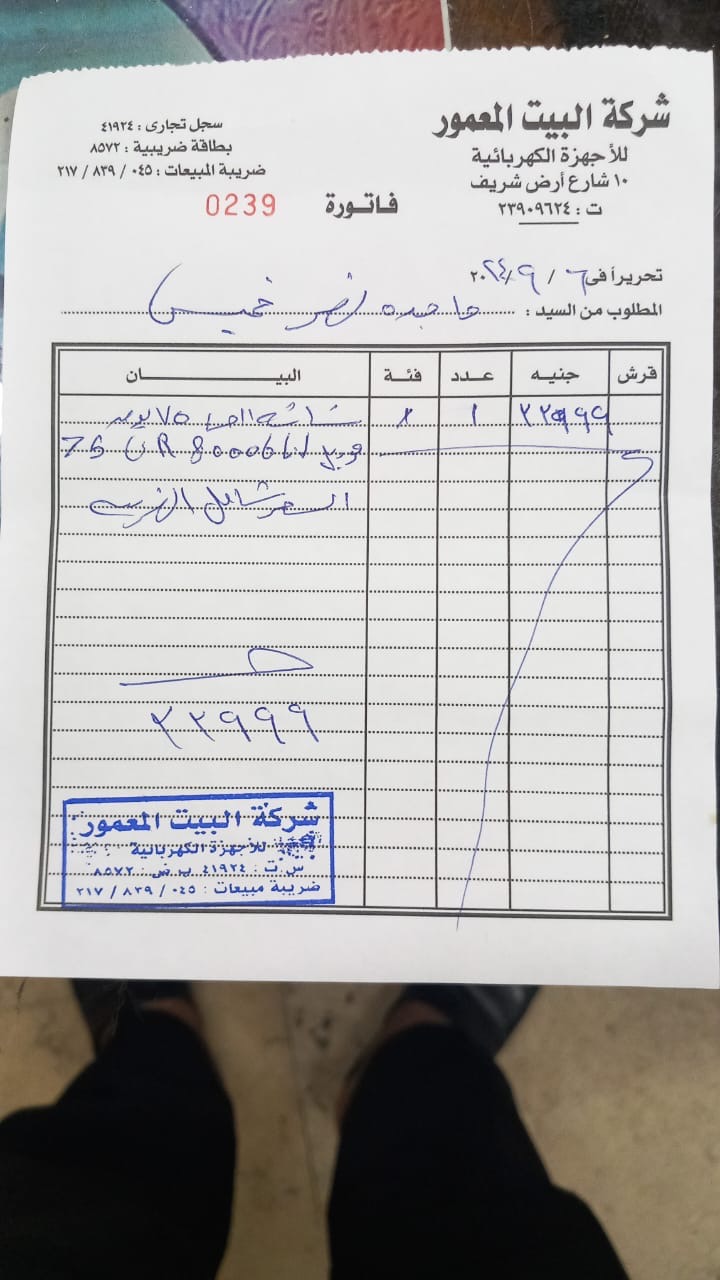 شركة البيت المعمور
للأجهزة الكهربائية
١٠ شارع أرض شريف
ت : ٢٣٩٠٩٦٢٤
سجل تجارى : ٤١٩٢٤
بطاقة ضريبية : ٨٥٧٢
ضريبة المبيعات : ٠٤٥ / ٨٣٩ / ٢١٧
فاتورة
0239
تحريراً فى ٦ / ٩ / ٢٠٢٤
المطلوب من السيد : ماجده نصر خميس
قرش جنيه عدد فئة البيان
١ شاشة ال جى ٧٥ بوصه
موديل 75 UR 80006
السعر شامل الضريبه
شركة البيت المعمور
للأجهزة الكهربائية
س . ت : ٤١٩٢٤ ب . ض : ٨٥٧٢
ضريبة مبيعات : ٠٤٥ / ٨٣٩ / ٢١٧